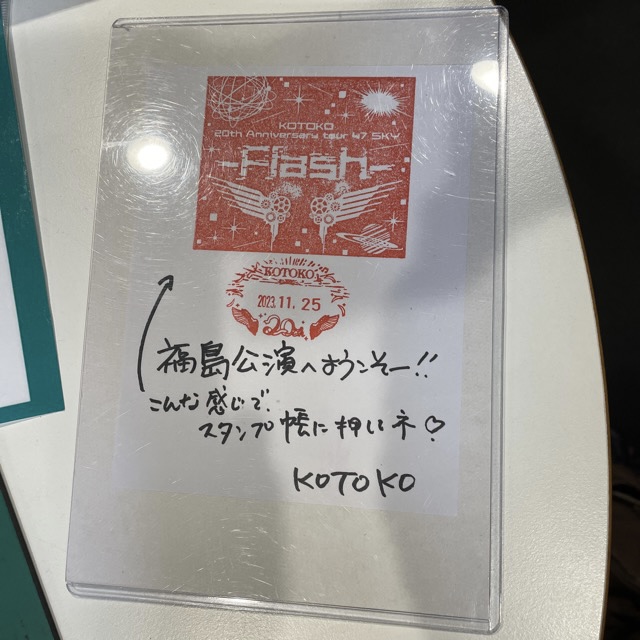 KOTOKO
20th Anniversary tour 47 SKY
-Flash-
KOTOKO
2023.11.25
20th
福島公演へようこそー!!
こんな感じで、
スタンプ帳に押してネ♡
KOTOKO